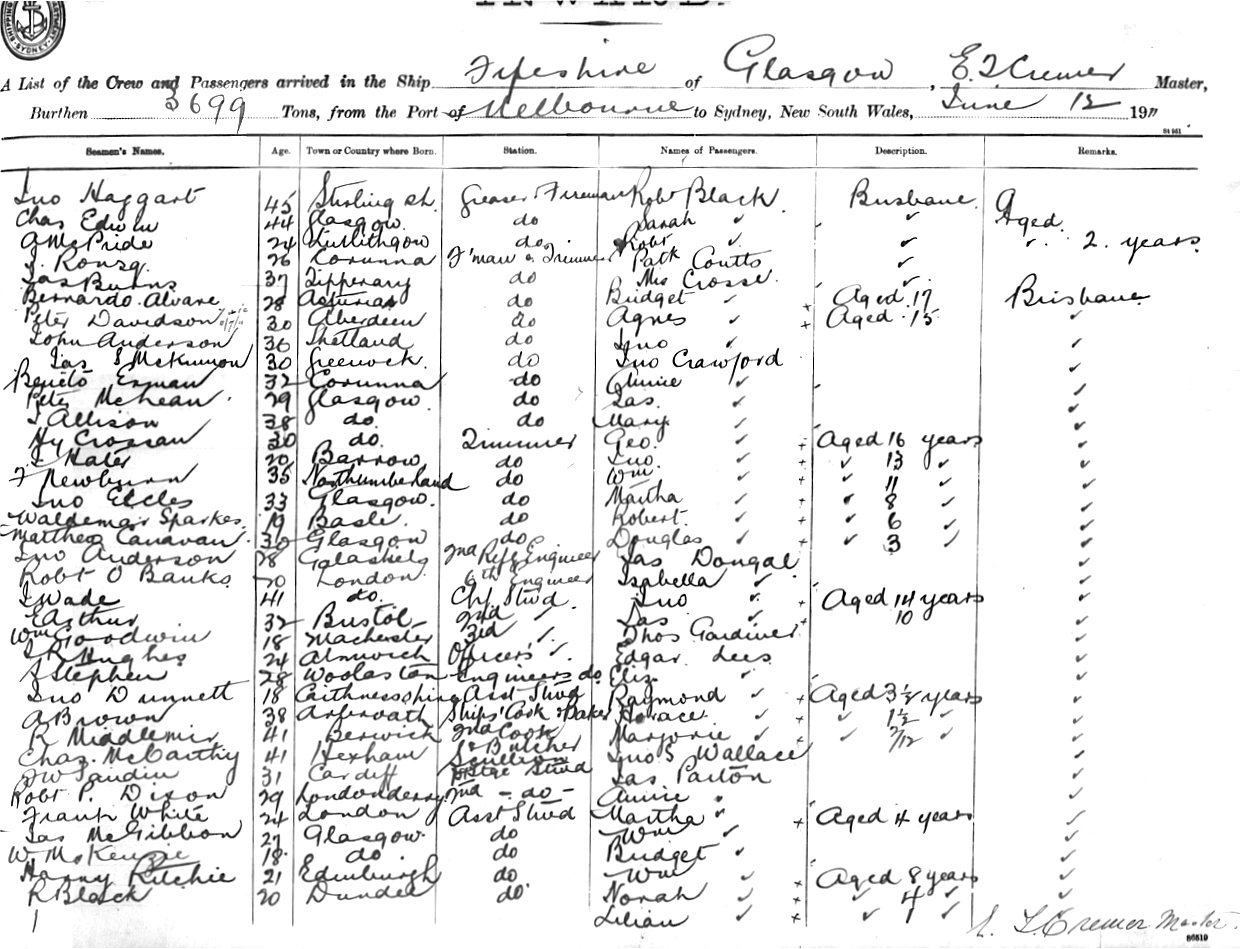 INWARD.
A List of the Crew and Passengers arrived in the Ship Fifeshire of Glasgow, E. T. Cremer Master,
Burthen 3699 Tons, from the Port of Melbourne to Sydney, New South Wales, June 12 1911
84 951
Seamen's Names. Age. Town or Country where Born. Station. Names of Passengers. Description. Remarks.
Jno Haggart 45 Stirling sh. Greaser & Fireman Robt Black Brisbane
Chas Edwin 44 Glasgow do Sarah ✓ ✓ Aged
A McPride 24 Linlithgow do Robt ✓ ✓ 2 years
26 Corunna F'man & Trimmer Patk Coutts ✓
Jas Burns 37 Tipperary do Mrs Crosse ✓
Bernardo Alvare 28 Asturias do Bridget ✓ Aged 17 Brisbane
Peter Davidson 30 Aberdeen do Agnes ✓ + Aged 15 ✓
John Anderson 30 Shetland do Jno ✓ ✓
Jas S McKinnon 30 Greenock do Jno Crawford ✓
Benito 32 Corunna do Annie ✓ ✓
Peter McLean 29 Glasgow do Jas. ✓ ✓
J Allison 38 do. do Mary ✓ ✓
Hy Crossan 30 do. Trimmer Geo. ✓ + Aged 16 years ✓
20 Barrow do Jno. ✓ + ✓ 13 ✓ ✓
F Newburn 35 Northumberland do Wm ✓ ✓ 11 ✓ ✓
Jno Eccles 33 Glasgow. do Martha ✓ + ✓ 8 ✓ ✓
Waldemar Sparkes 19 Basle. do Robert ✓ + ✓ 6 ✓ ✓
Matthew Canavan 30 Glasgow do Douglas ✓ + ✓ 3 ✓ ✓
Jno Anderson 28 Galashiels 2nd Refg Engineer Jas Dougal ✓
Robt O Banks 20 London 6th Engineer Isabella ✓ ✓
J Wade 41 do. Chf Stwd. Jno ✓ Aged 14 years ✓
E Arthur 32 Bristol 2nd ✓ Jas ✓ 10 ✓
Wm Goodwin 18 Machester 3rd ✓ Thos Gardiner ✓
Hughes 24 Alnwich Officers' ✓ Edgar Lees ✓
S Stephen 28 Woolaston Engineers do. Eliz ✓ ✓
Jno Dunnett 18 Caithnessshire Asst Stwd Raymond ✓ + Aged 3½ years ✓
A Brown 38 Arbroath Ships' Cook & Baker Horace ✓ + ✓ 1½ ✓ ✓
R Middlemis 41 Berwick 2nd Cook Marjorie ✓ + ✓ 7/12 ✓ ✓
Chas. McCarthy 41 Hexham & Butcher Jno S Wallace ✓
31 Cardiff Scullion Jas Parton ✓
Robt P. Dixon 29 Londonderry 2nd - do - Annie ✓ ✓
Frank White 24 London Asst Stwd Martha ✓ + Aged 4 years ✓
Jas McGibbon 27 Glasgow do Wm ✓ ✓
W McKenzie 18 do do Bridget ✓ ✓
Harry Ritchie 21 Edinburgh do Wm ✓ + Aged 8 years ✓
R Black 20 Dundee do Norah ✓ + ✓ 4 ✓ ✓
Lilian ✓ + ✓ 1 ✓
E. T. Cremer Master.
86510